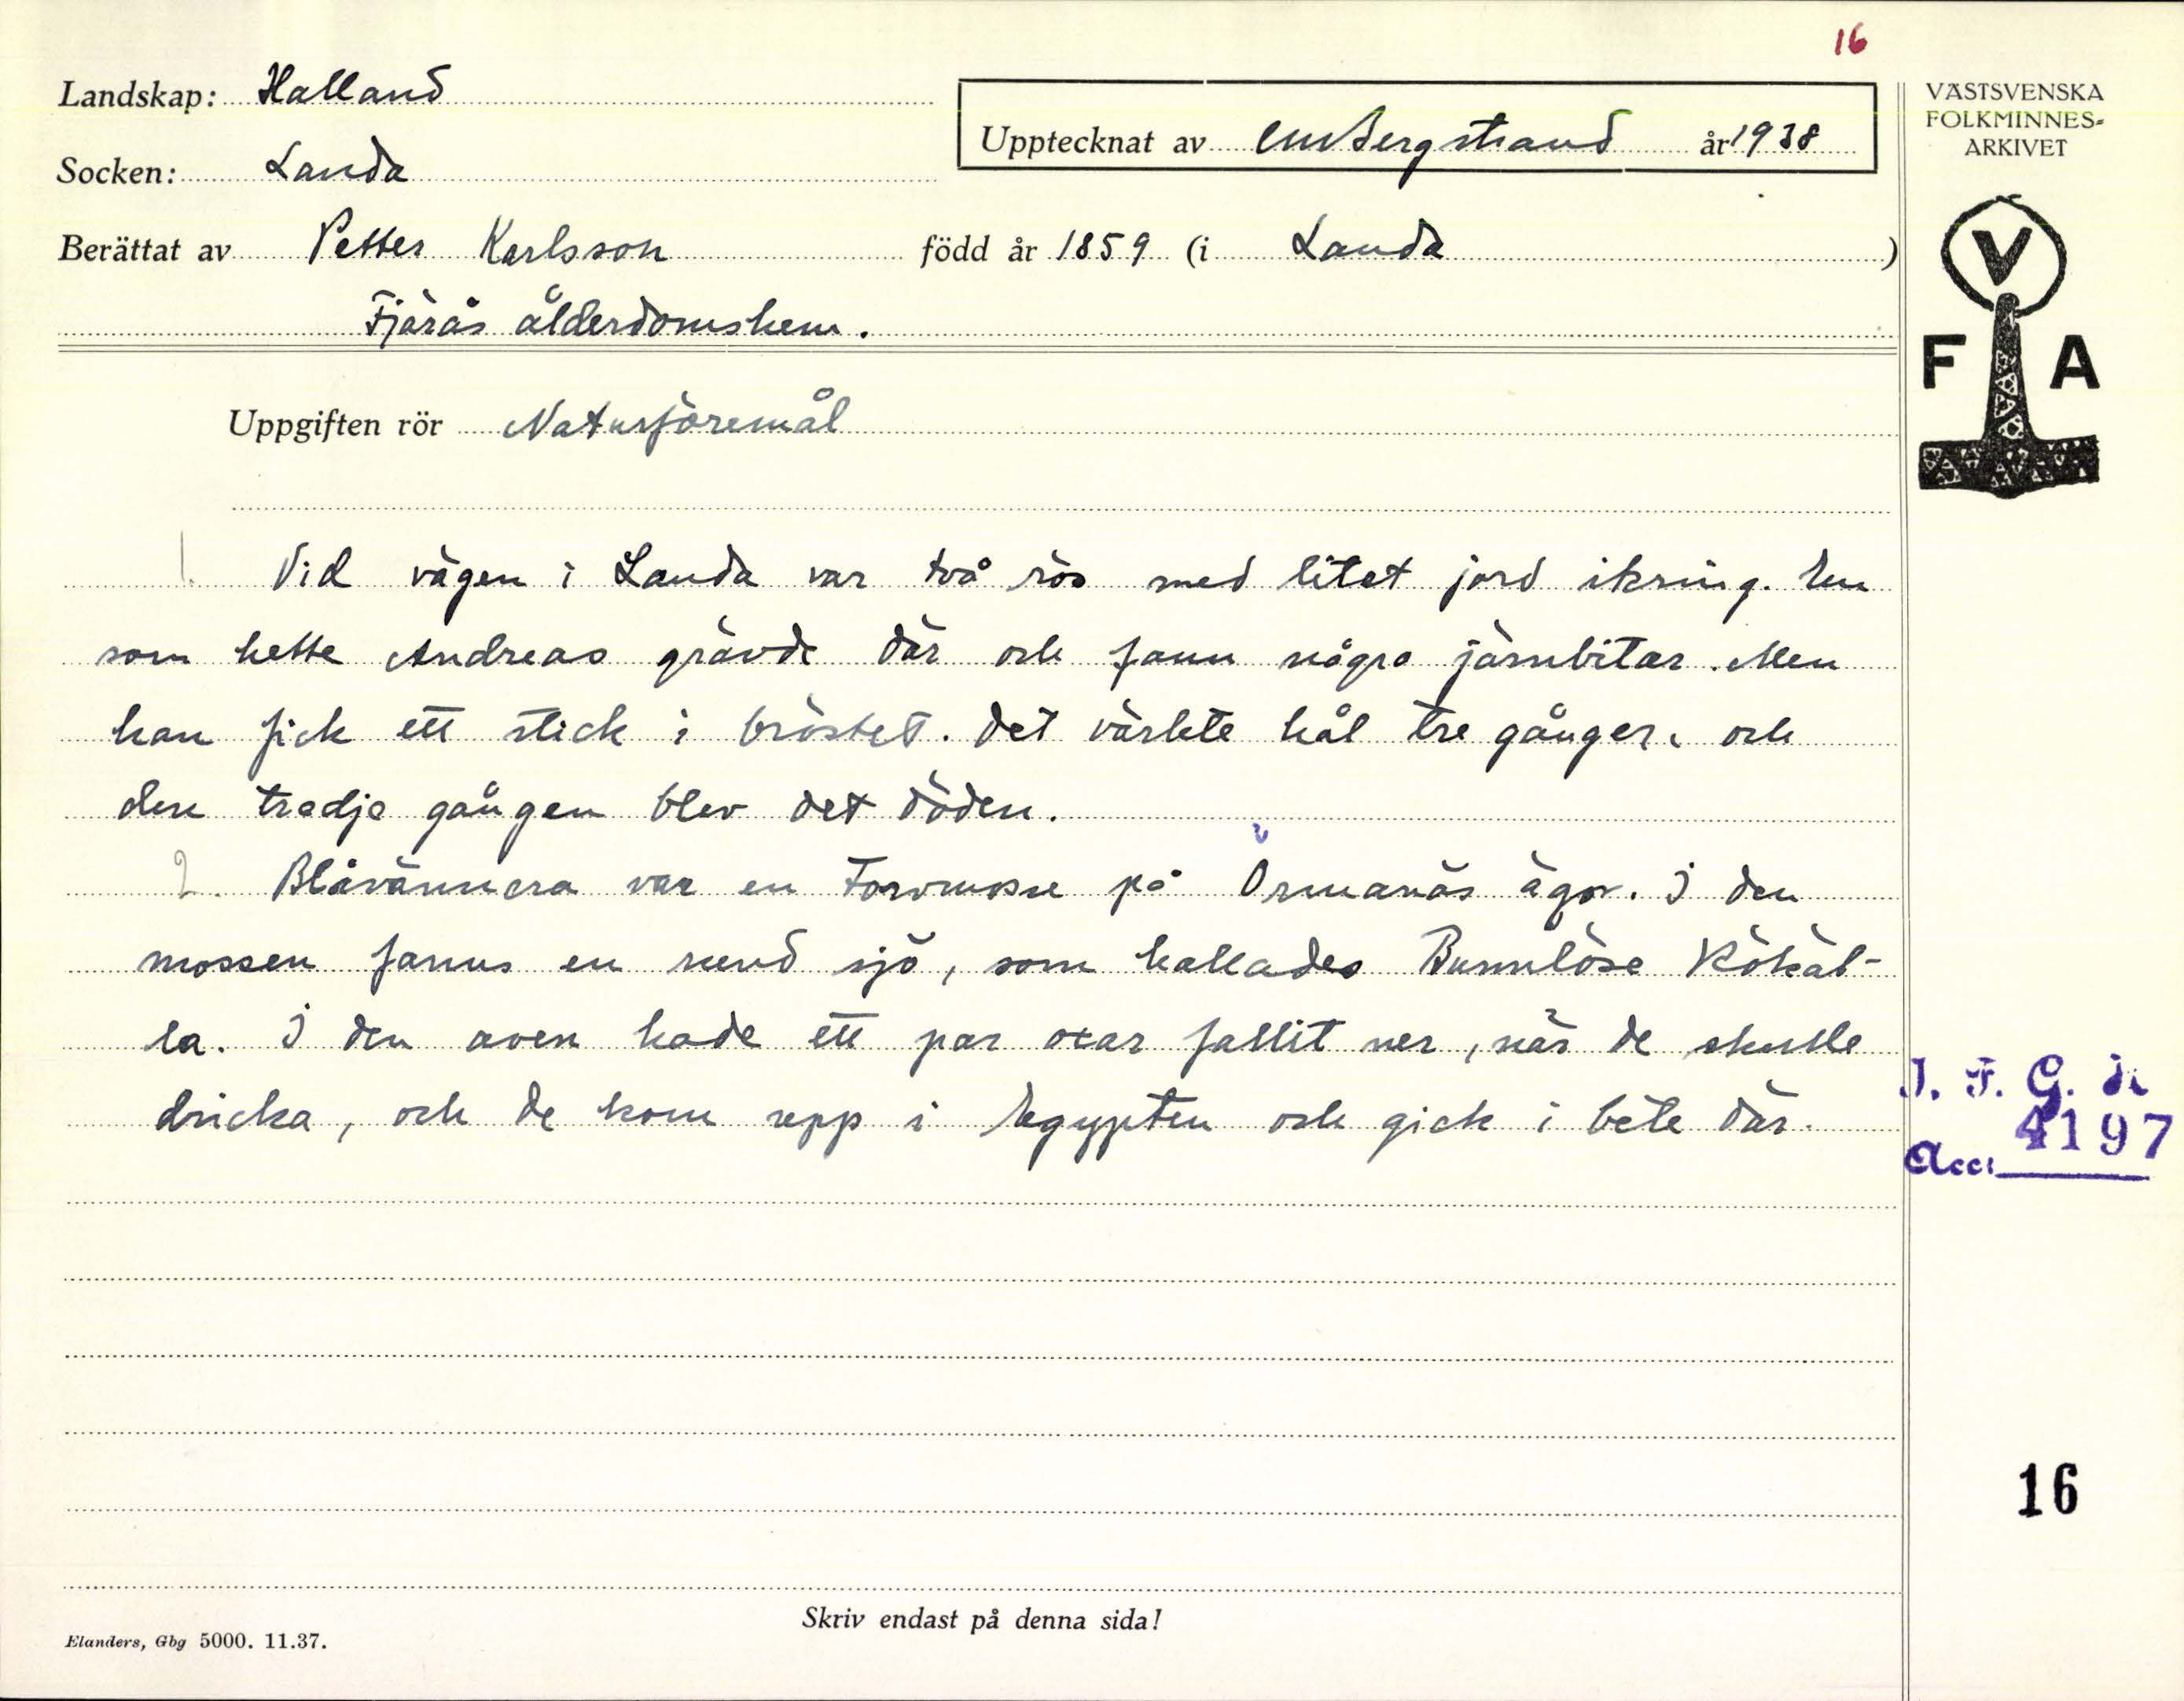 16
Landskap: Halland
Upptecknat av CM Bergstrand år 1938
Socken: Landa
Berättat av Petter Karlsson född år 1859 (i Landa)
Fjärås ålderdomshem.
VÄSTSVENSKA
FOLKMINNES-
ARKIVET
V
F A
Uppgiften rör Naturföremål
1. Vid vägen i Landa var två rös med litet jord ikring. En
som hette Andreas grävde där och fann några järnbitar. Men
han fick ett stick i bröstet. Det värkte hål tre gånger, och
den tredje gången blev det döden.
2. Blåvännera var en torvmosse på Ormanäs ägor. I den
mossen fanns en rund sjö, som kallades Bunnlöse Kökäl-
la. I den aven hade ett par oxar fallit ner, när de skulle
dricka, och de kom upp i Egypten och gick i bete där.
I. F. G. 
Acc: 4197
16
Skriv endast på denna sida!
Elanders, Gbg 5000. 11.37.